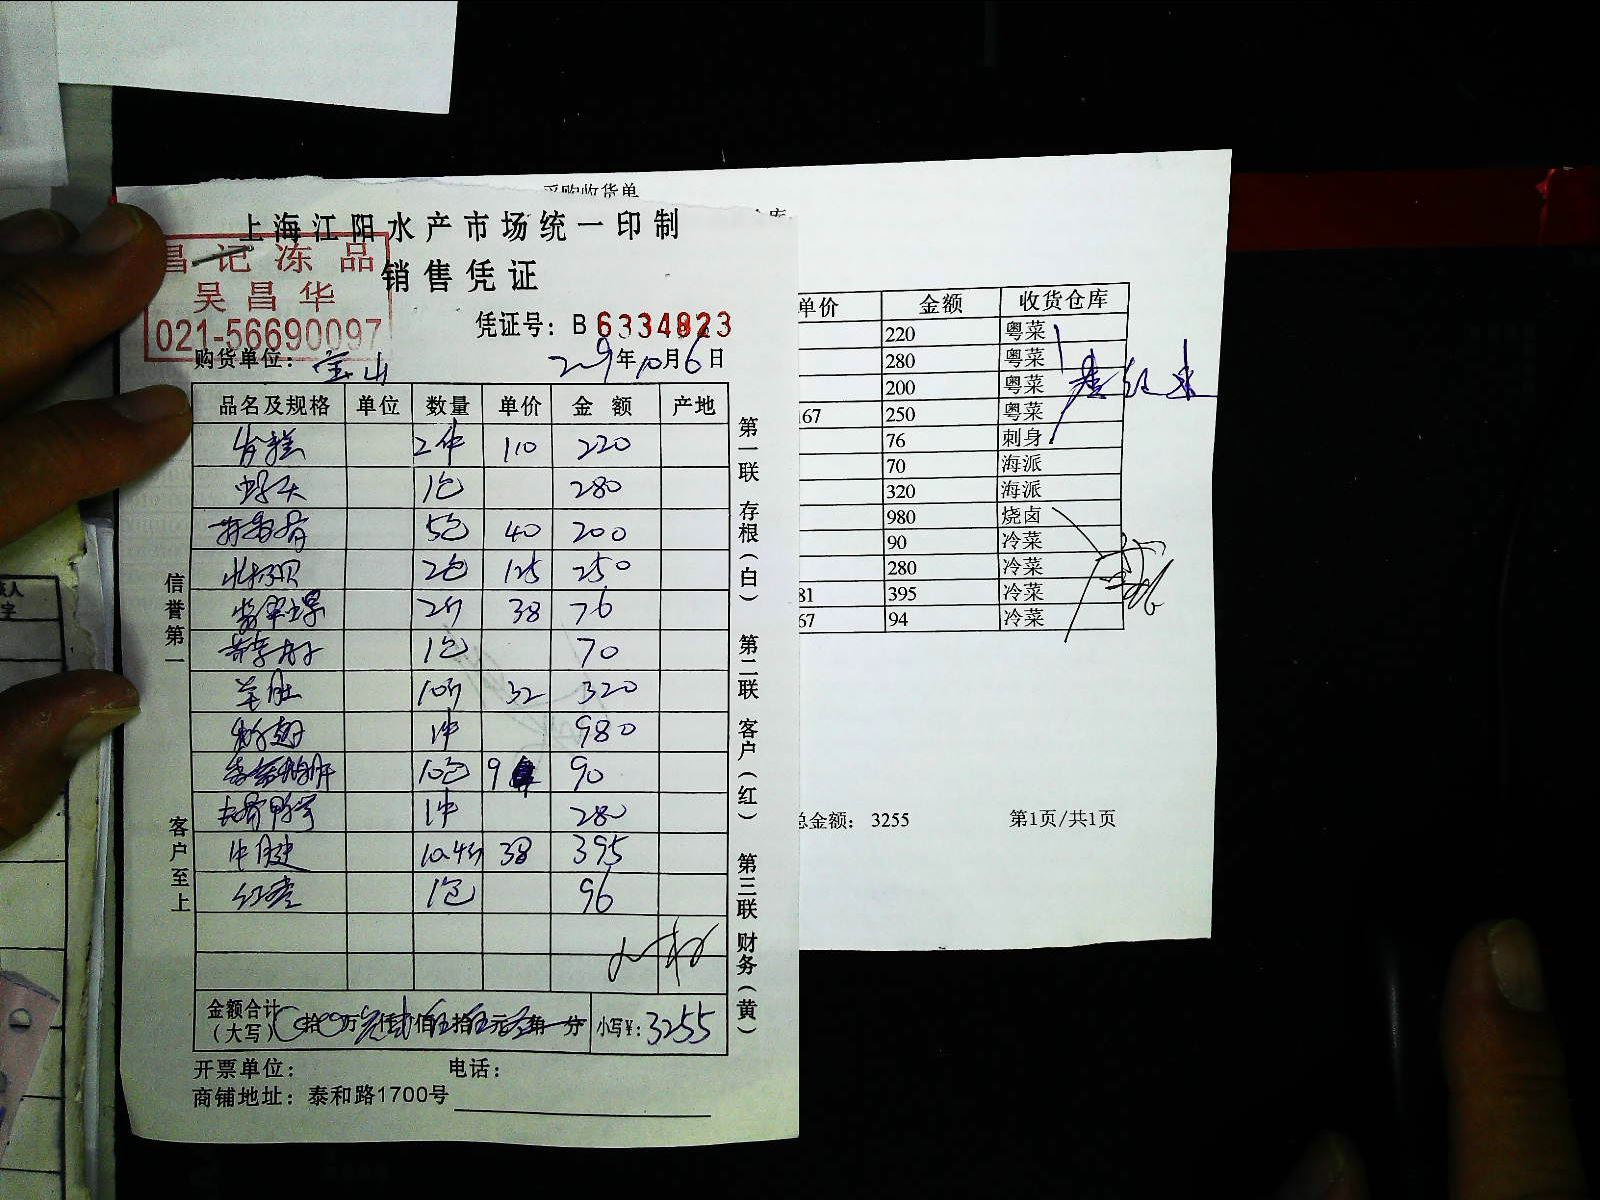 采购收货单
上海江阳水产市场统一印制
昌记冻品
销售凭证
吴昌华
凭证号: B 6334823
021-56690097
购货单位: 宝山 2019年10月6日
品名及规格 单位 数量 单价 金额 产地
2件 110 220
1包 280
5包 40 200
2包 125 250
2斤 38 76
1包 70
羊肚 10斤 32 320
1件 980
10包 9 90
1件 280
牛腱 10.4斤 38 395
红枣 1包 96
金额合计
(大写) 拾 万 仟 佰 拾 元 角 分 小写¥: 3255
开票单位: 电话:
商铺地址: 泰和路1700号
信誉第一
客户至上
第一联 存根(白) 第二联 客户(红) 第三联 财务(黄)
单价 金额 收货仓库
220 粤菜
280 粤菜
200 粤菜
167 250 粤菜
76 刺身
70 海派
320 海派
980 烧卤
90 冷菜
280 冷菜
81 395 冷菜
67 94 冷菜
总金额: 3255 第1页/共1页